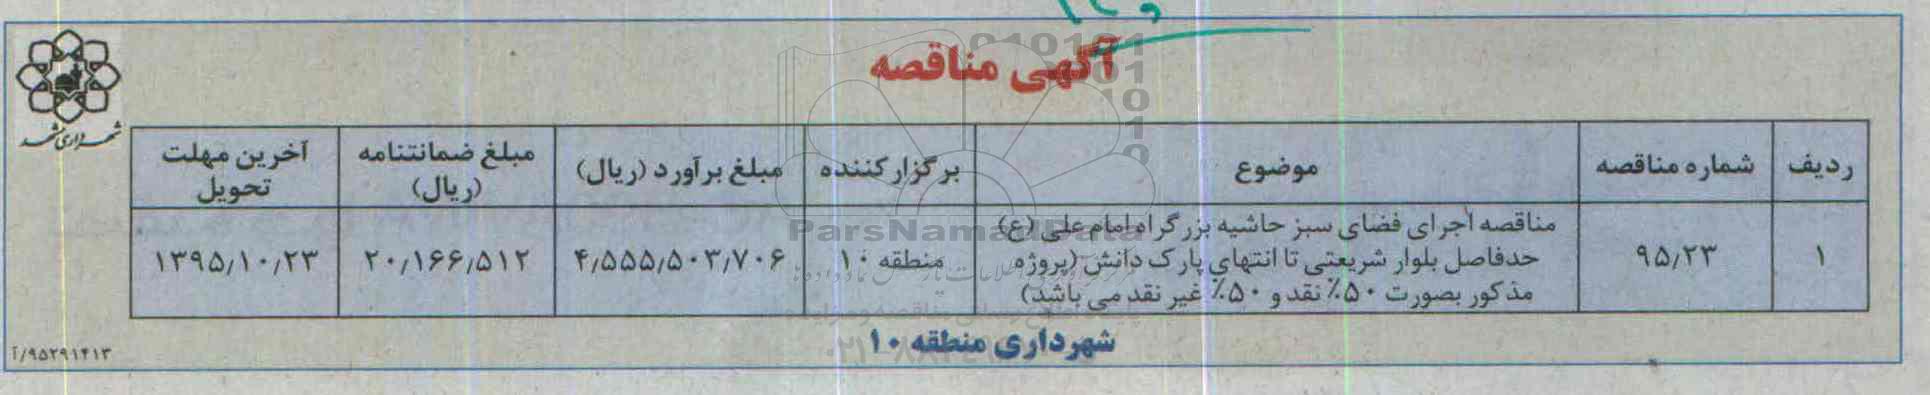 آگهی مناقصه
شهرداری مشهد
ردیف	شماره مناقصه	موضوع	برگزار کننده	مبلغ برآورد (ریال)	مبلغ ضمانتنامه (ریال)	آخرین مهلت تحویل
۱	۹۵/۲۳	مناقصه اجرای فضای سبز حاشیه بزرگراه امام علی (ع)
حدفاصل بلوار شریعتی تا انتهای پارک دانش (پروژه
مذکور بصورت ۵۰٪ نقد و ۵۰٪ غیر نقد می باشد)
منطقه ۱۰	۴,۵۵۵,۵۰۳,۷۰۶	۲۰,۱۶۶,۵۱۲	۱۳۹۵/۱۰/۲۳
شهرداری منطقه ۱۰
۹۵۲۹۱۴۱۳/آ
ParsNamadData